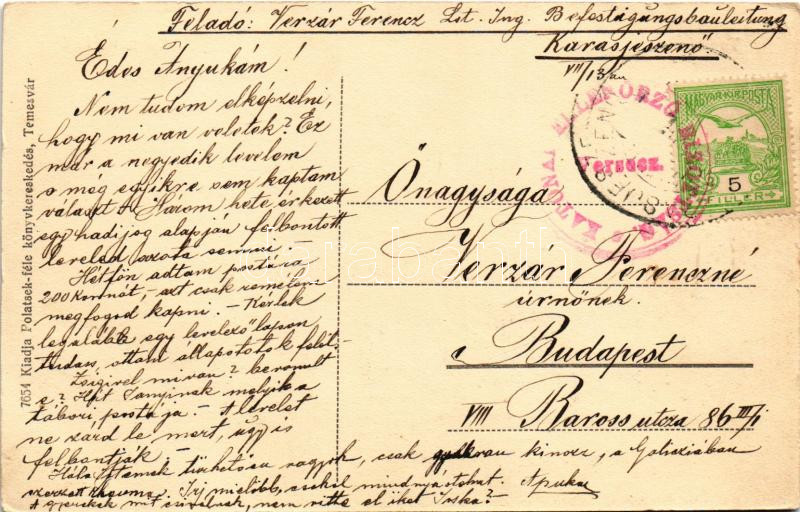 Feladó: Verzár Ferencz Lit. Ing. Befestigungsbauleitung
Karasjeszenő
VII/13án
Édes Anyukám!
Nem tudom elképzelni,
hogy mi van veletek? Ez
már a negyedik levelem
s még egyikre sem kaptam
választ. Három hete érkezett
egy hadi jog alapján felbontott
leveled azota semmi.
Hétfőn adtam postára
200 koronát, - azt csak remélem
megfogod kapni. - Kérlek
legalább egy levelező lapon
tudass, ottani állapototok felől.
Zsigivel mi van? bevonult
e? Hát Sanyinak melyik a
tábori postája. - A levelet
ne zárd le mert, úgy is
felbontják. -
Hála Istennek tűrhetősen vagyok, csak gyakran kinoz, a Galicziában
szerzett . Irj mielőbb, csókol mindnyájatokat. Apuka
A gyerekek mit csinálnak, nem vitte el őket Iriska? -
Önagysága
Verzár Ferenczné
úrnőnek.
Budapest
VIII Baross utcza 86 III/1
MAGYAR KIR. POSTA
5
FILLÉR
KATONAI ELLENŐRZŐ BIZOTTSÁG
Versecz.
7654 Kiadja Polatsek-féle könyvkereskedés, Temesvár